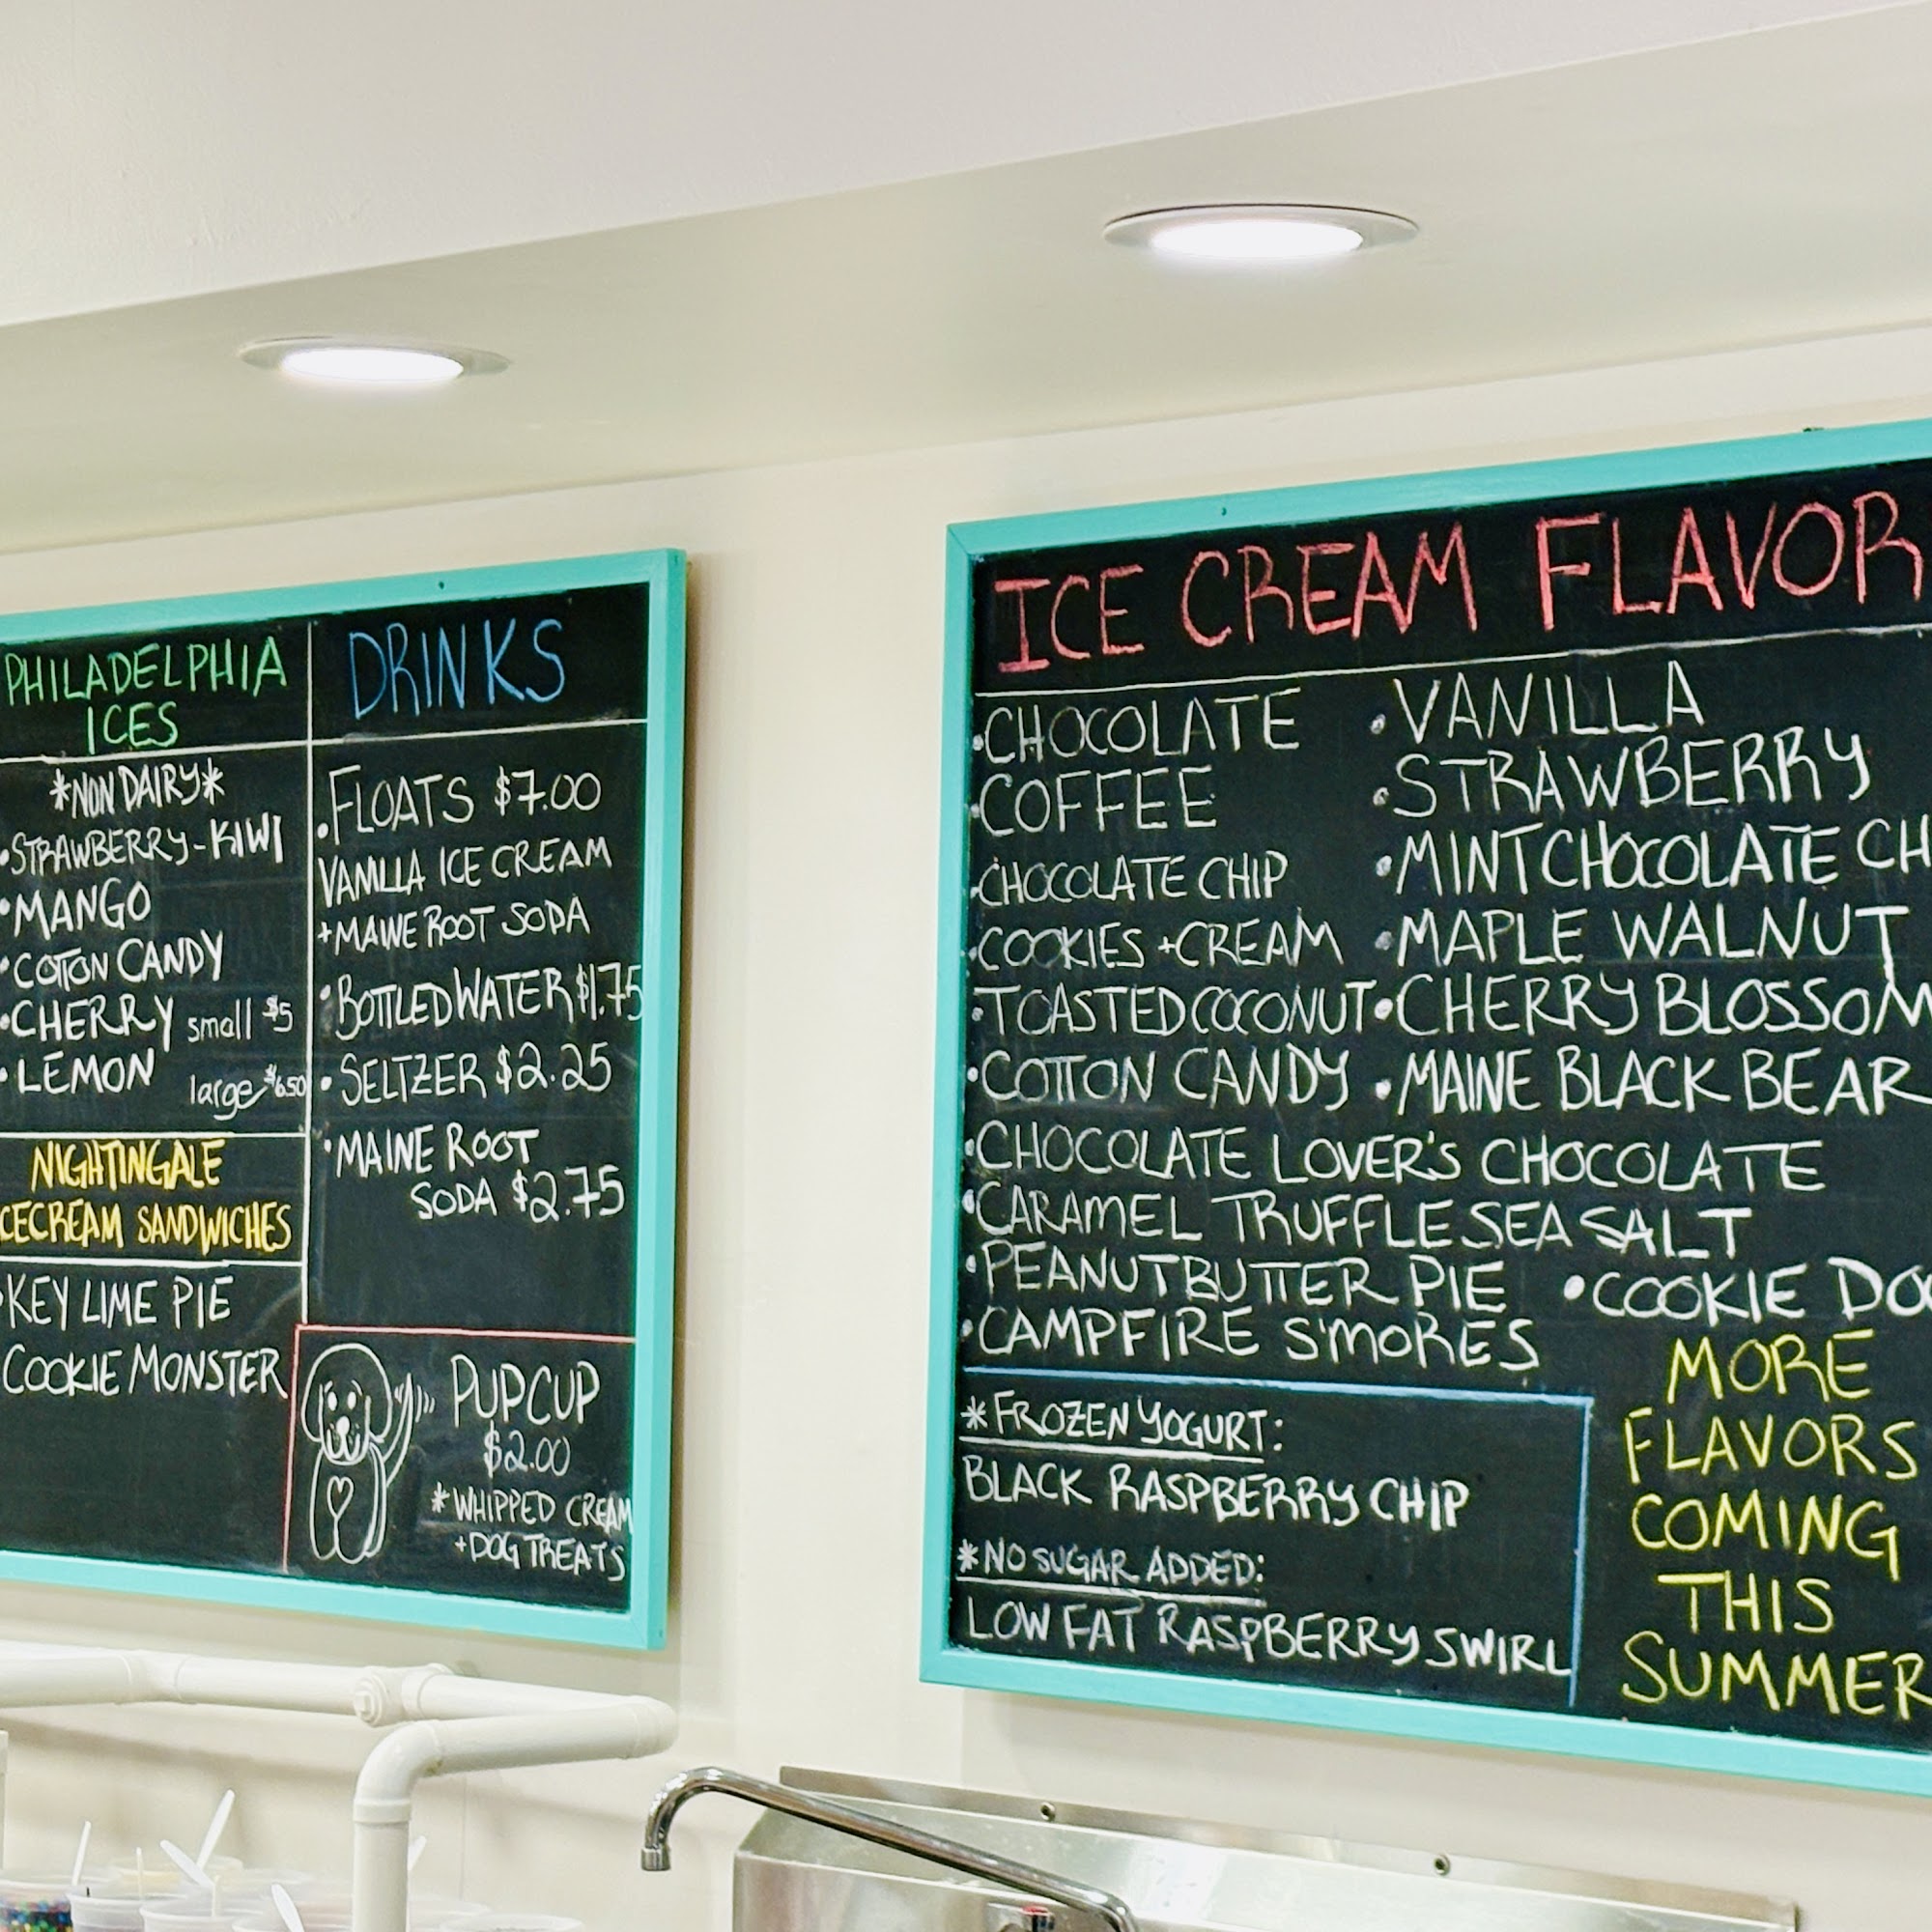 PHILADELPHIA
ICES
*NON DAIRY*
•STRAWBERRY-KIWI
•MANGO
•COTTON CANDY
•CHERRY small $5
•LEMON large $6.50
NIGHTINGALE
ICECREAM SANDWICHES
•KEY LIME PIE
COOKIE MONSTER
DRINKS
•FLOATS $7.00
VANILLA ICE CREAM
+MAINE ROOT SODA
•BOTTLED WATER $1.75
•SELTZER $2.25
•MAINE ROOT
SODA $2.75
PUP CUP
$2.00
*WHIPPED CREAM
+DOG TREATS
ICE CREAM FLAVOR
•CHOCOLATE •VANILLA
•COFFEE •STRAWBERRY
•CHOCOLATE CHIP •MINT CHOCOLATE CH
•COOKIES +CREAM •MAPLE WALNUT
•TOASTED COCONUT •CHERRY BLOSSOM
•COTTON CANDY •MAINE BLACK BEAR
•CHOCOLATE LOVER'S CHOCOLATE
•CARAMEL TRUFFLE SEA SALT
•PEANUT BUTTER PIE •COOKIE DO
•CAMPFIRE S'MORES
*FROZEN YOGURT:
BLACK RASPBERRY CHIP
*NO SUGAR ADDED:
LOW FAT RASPBERRY SWIRL
MORE
FLAVORS
COMING
THIS
SUMMER